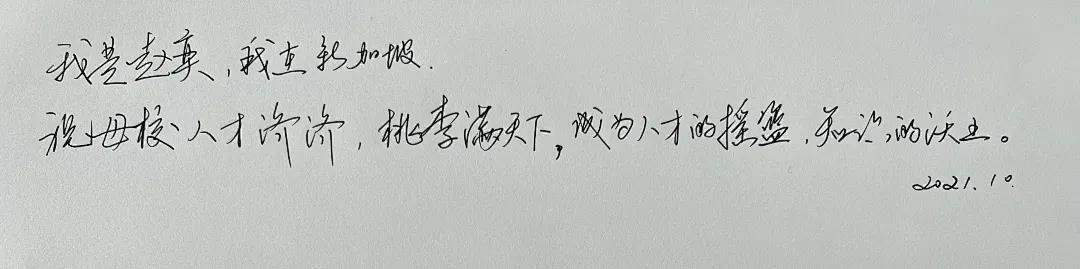 我是赵英,我在新加坡.
祝母校人才济济,桃李满天下,成为人才的摇篮,知识的沃土。
2021.10.